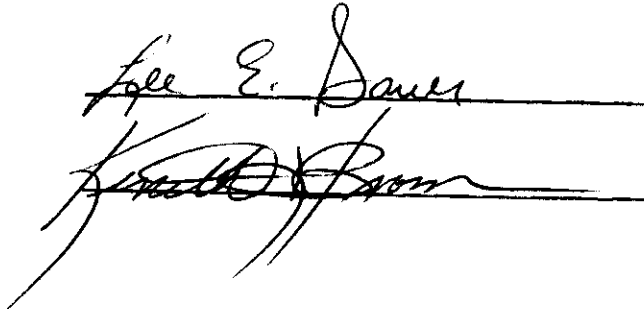 Lyle E. Sauer
Kenneth Brown